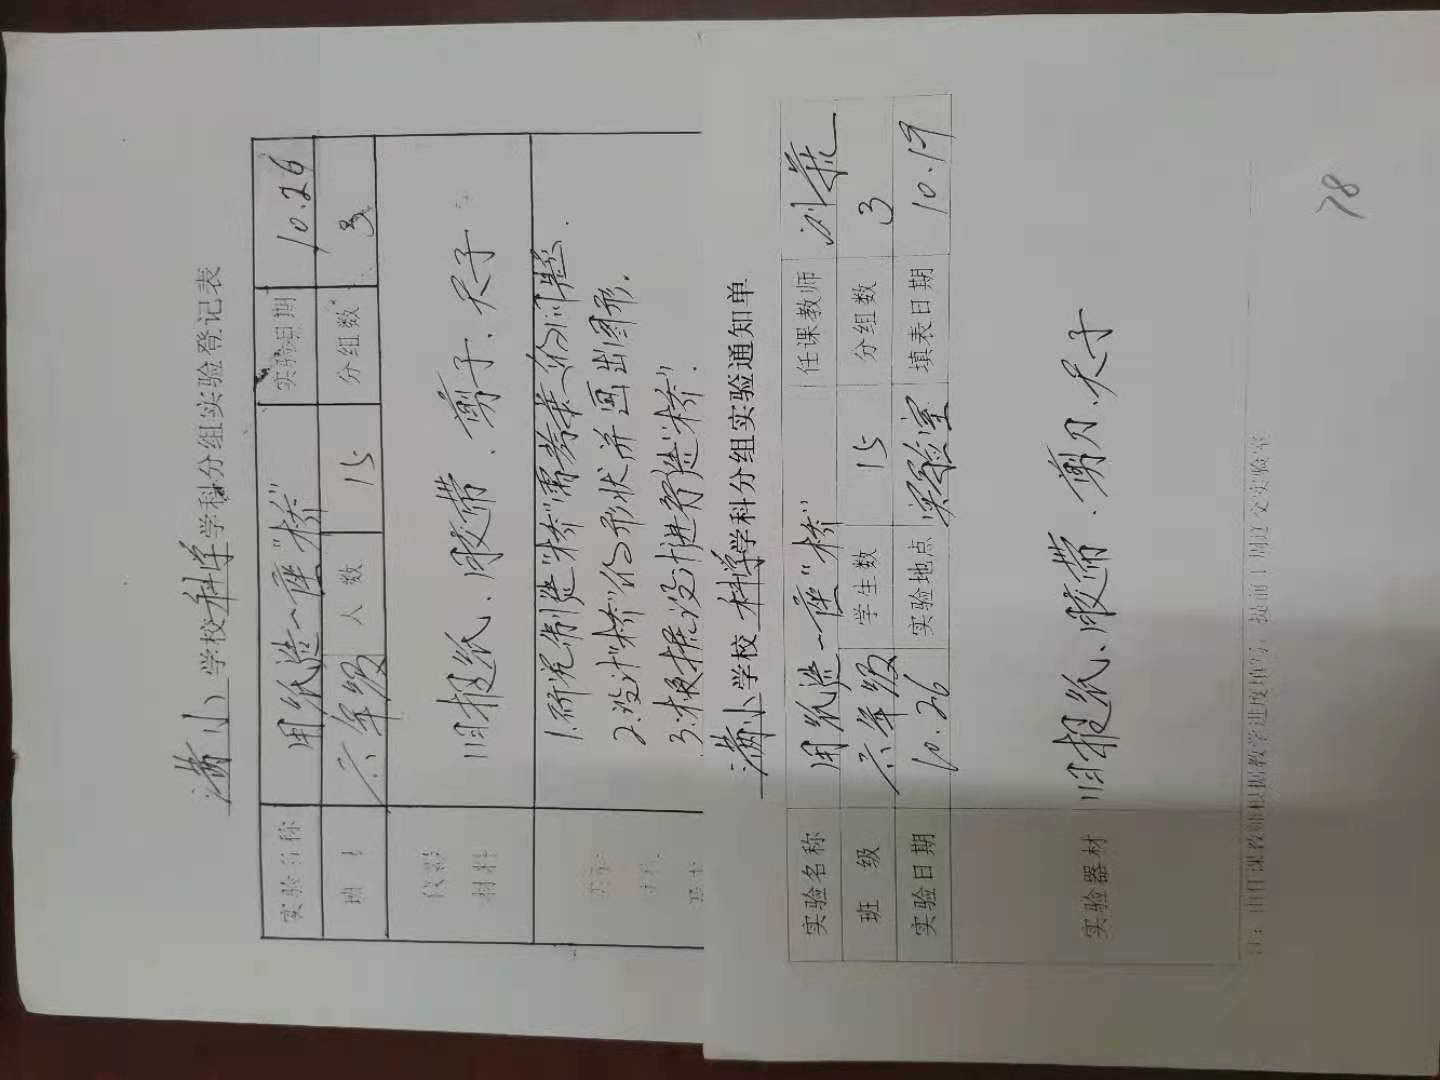 满小学校科学学科分组实验登记表
实验名称 用纸造一座"桥" 实验日期 10.26
班 六年级 人数 15 分组数 3
仪器 材料 旧报纸、胶带、剪子、尺子
1.研究制造"桥"需考虑的问题.
2.设计"桥"的形状并画出图形.
3.根据设计进行造"桥".
满小学校科学学科分组实验通知单
实验名称 用纸造一座"桥" 任课教师 刘
班 级 六年级 学生数 15 分组数 3
实验日期 10.26 实验地点 实验室 填表日期 10.19
实验器材 旧报纸、胶带、剪刀、尺子
注：由任课教师根据教学进度填写，提前1周送交实验室
78